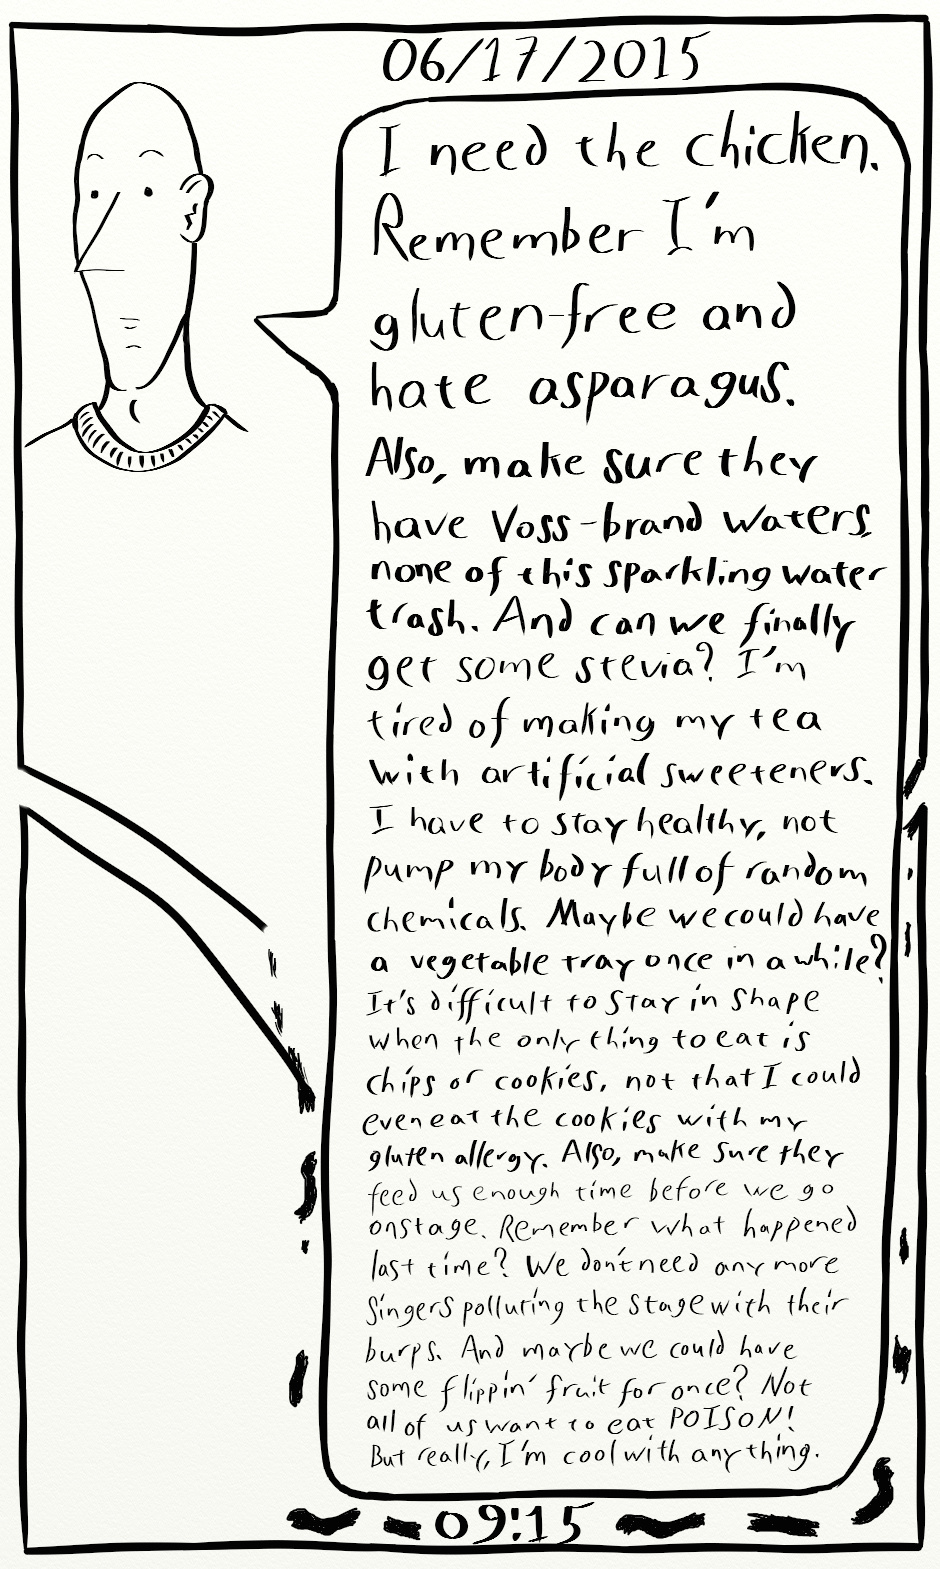 06/17/2015
I need the chicken.
Remember I'm
gluten-free and
hate asparagus.
Also, make sure they
have Voss-brand waters,
none of this sparkling water
trash. And can we finally
get some stevia? I'm
tired of making my tea
with artificial sweeteners.
I have to stay healthy, not
pump my body full of random
chemicals. Maybe we could have
a vegetable tray once in a while?
It's difficult to stay in shape
when the only thing to eat is
chips or cookies, not that I could
even eat the cookies with my
gluten allergy. Also, make sure they
feed us enough time before we go
onstage. Remember what happened
last time? We don't need any more
singers polluting the stage with their
burps. And maybe we could have
some flippin' fruit for once? Not
all of us want to eat POISON!
But really, I'm cool with anything.
09:15